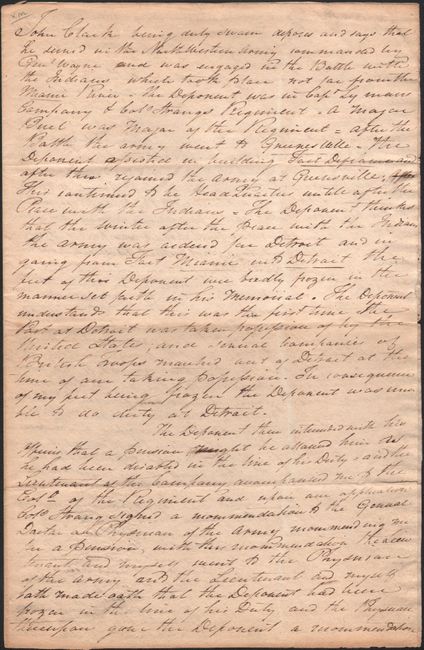 John Clark being duly sworn deposes and says that
he served in the North Western Army commanded by
Genl Wayne and was engaged in the Battle with
the Indians which took place not far from the
Miami River - the Deponent was in Capt Lymans
Company & Colo Strangs Regiment - A Major
Buel was Major of the Regiment - after the
Battle the army went to Greenesville - the
Deponent assisted in building Fort Defiance and
after this rejoined the Army at Greensville,
This continued to be Head Quarters untill after the
Peace with the Indians - The Deponent thinks
that the Winter after the Peace with the Indians
the army was ordered for Detroit and in
going from Fort Miami into Detroit the
feet of this Deponent were badly frozen in the
manner set forth in his Memorial - The Deponent
understands that this was the first time the
Post at Detroit was taken possession of by the
United States, and several Companies of
British Troops marched out of Detroit at the
time of our taking possession. In consequence
of my feet being frozen the Deponent was una
ble to do duty at Detroit.
The Deponent then interceded with his
officers that a pension might be allowed him as
he had been disabled in the line of his Duty - and the
Lieutenant of the Company accompanied me to the
Colo of the Regiment and upon our application
Colo Strang signed a recommendation to the General
Doctor or Physician of the Army recommending me
for a Pension, with this recommendation the Lieu
tenant and myself went to the Physician
of the Army and the Lieutenant and myself
both made oath that the Deponent had been
frozen in the line of his Duty and the Physician
thereupon gave the Deponent a recommendation